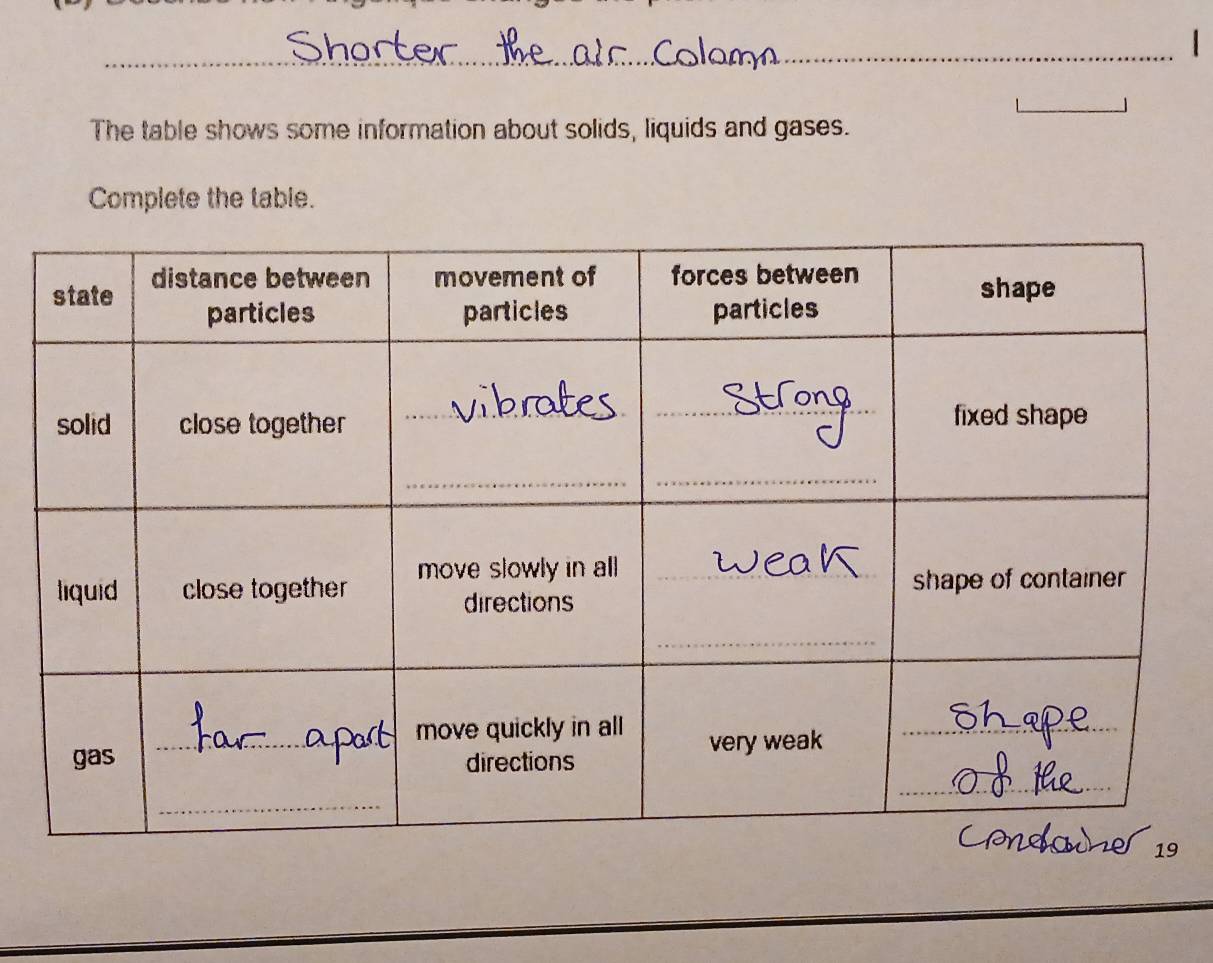 Shorter the air Colamn
The table shows some information about solids, liquids and gases.
Complete the table.
state
distance between
particles
movement of
particles
forces between
particles
shape
solid
close together
vibrates
strong
fixed shape
liquid
close together
move slowly in all
directions
weak
shape of container
gas
far apart
move quickly in all
directions
very weak
shape
of the
container
19